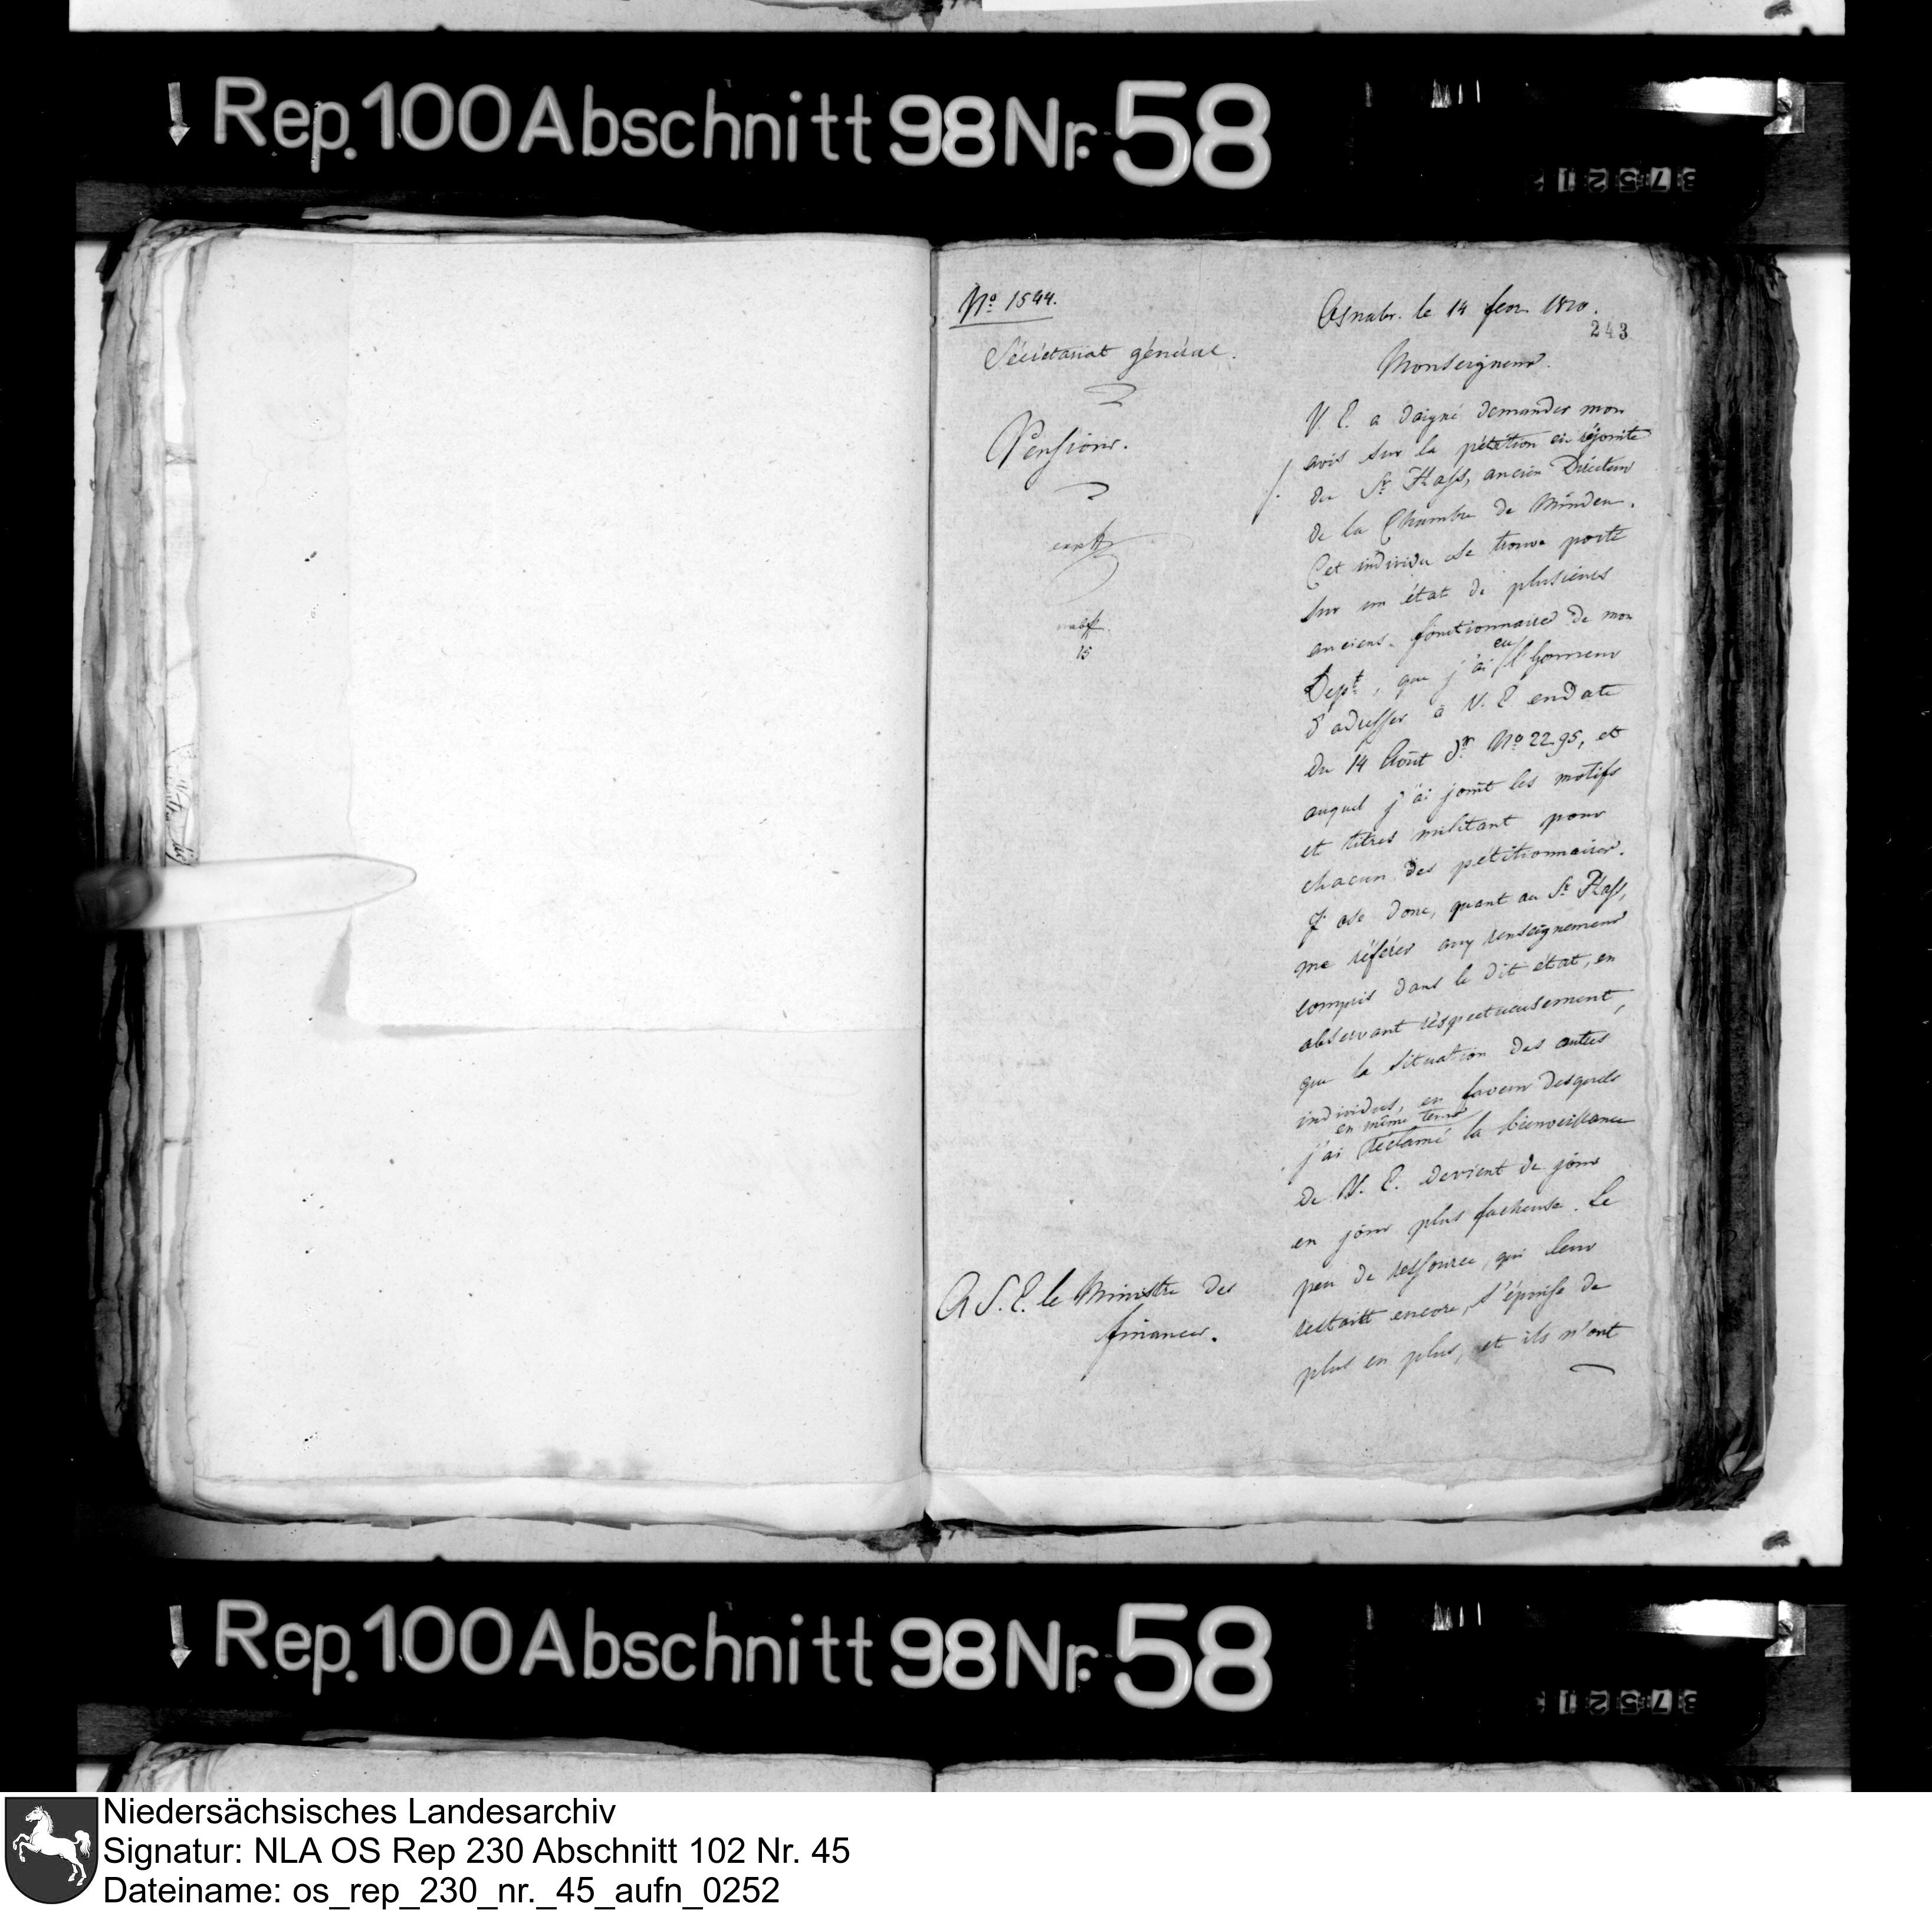 Rep. 100 Abschnitt 98 Nr. 58
No 1544.
Sécrétariat général.
Pensions.
15
A S. E. le Ministre des
finances.
Osnabr. le 14 fevr. 1810.
243
Monseigneur.
V. E. a daigné demander mon
avis sur la pétition ci rejointe
du Sr. Hass, ancien Directeur
de la Chambre de Minden.
Cet individu se trouve porté
sur un état de plusieurs
anciens fonctionnaires de mon
Dept, que j'ai eu l'honneur
d'adresser à V. E. en date
du 14 Août dr. No 2295, et
auquel j'ai joint les motifs
et titres militant pour
chacun des pétitionnaires.
J'ose donc, quant au Sr. Hass,
me référer aux renseignemens
compris dans le dit état, en
observant respectueusement,
que la situation des autres
individus, en faveur desquels
j'ai en même tems réclamé la bienveillance
de V. E. devient de jour
en jour plus facheuse. Le
peu de ressource, qui leur
restait encore, s'épuise de
plus en plus, et ils n'ont
Rep. 100 Abschnitt 98 Nr. 58
Niedersächsisches Landesarchiv
Signatur: NLA OS Rep 230 Abschnitt 102 Nr. 45
Dateiname: os_rep_230_nr._45_aufn_0252